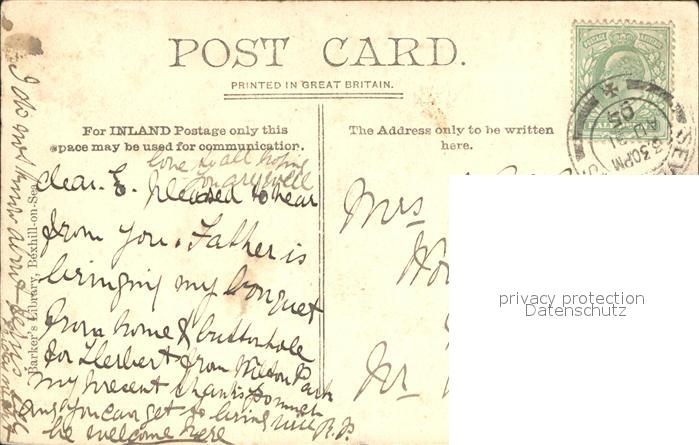 POST CARD.
PRINTED IN GREAT BRITAIN.
For INLAND Postage only this
space may be used for communication.
The Address only to be written
here.
love to all hoping
you are well
dear. E. pleased to hear
from you. Father is
bringing my bouquet
from home & buttonhole
for Herbert from Wilton Park
my present thanks
you can get to bring will
be welcome here
R.P.
I do not know about
Barker's Library, Bexhill-on-Sea
Mrs
Nr
3.30PM
AU 21
05
privacy protection
Datenschutz